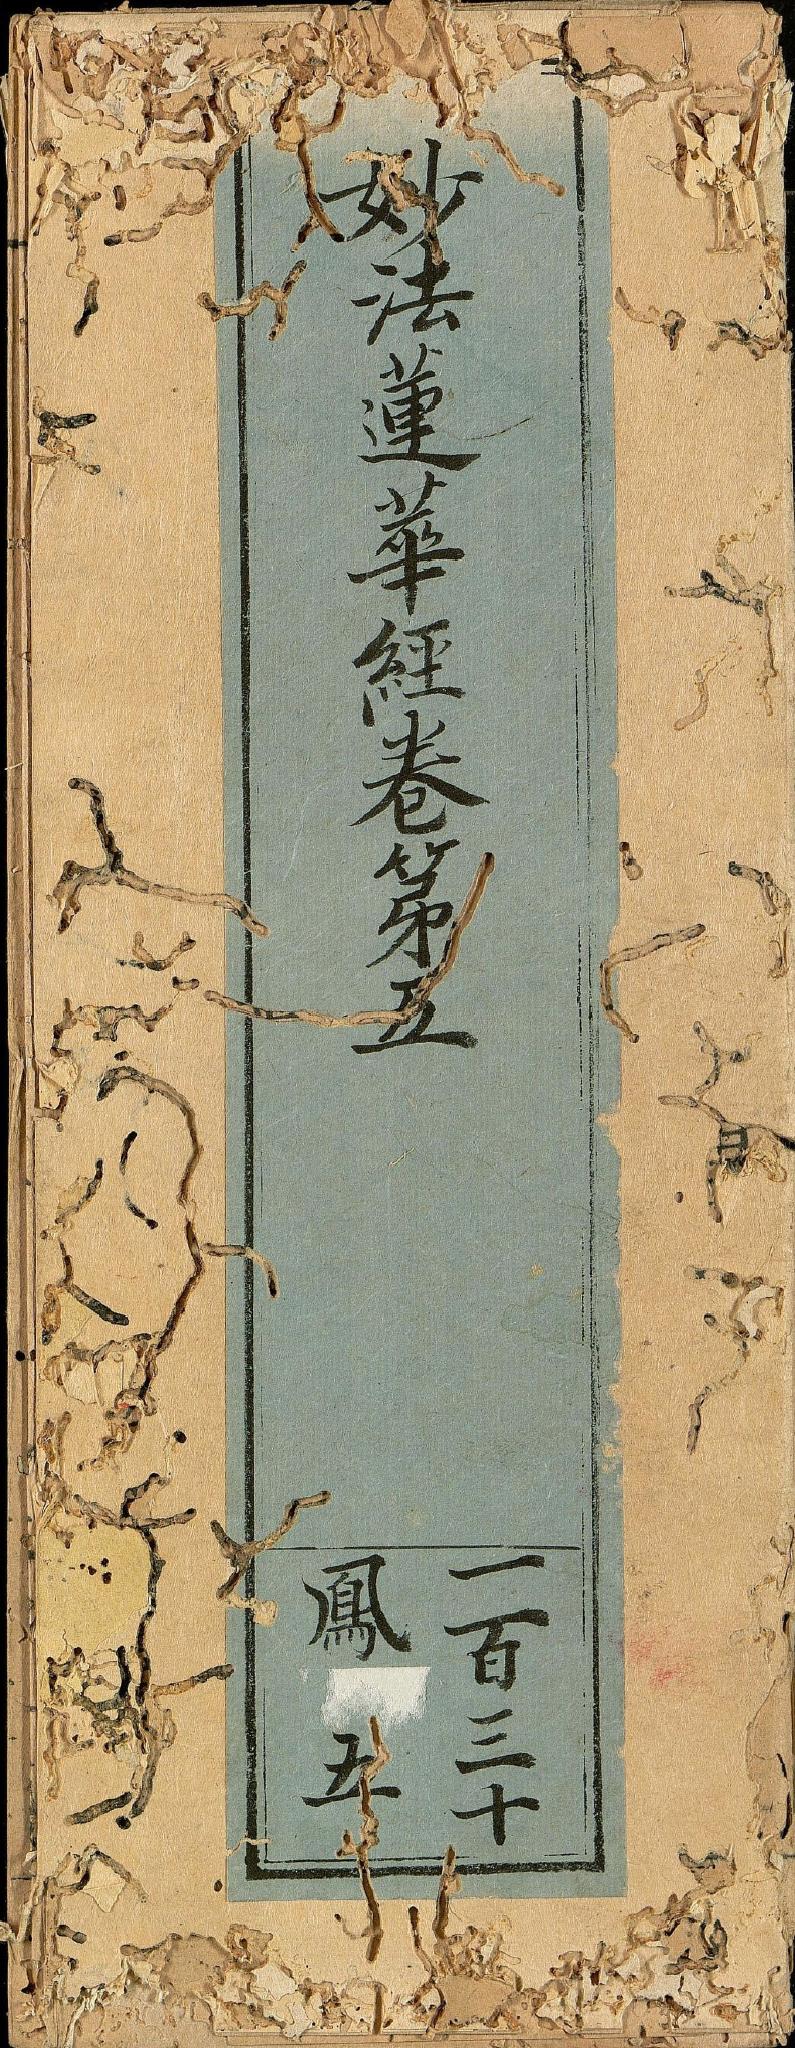 妙法蓮華經卷第五
一百三十
鳳五